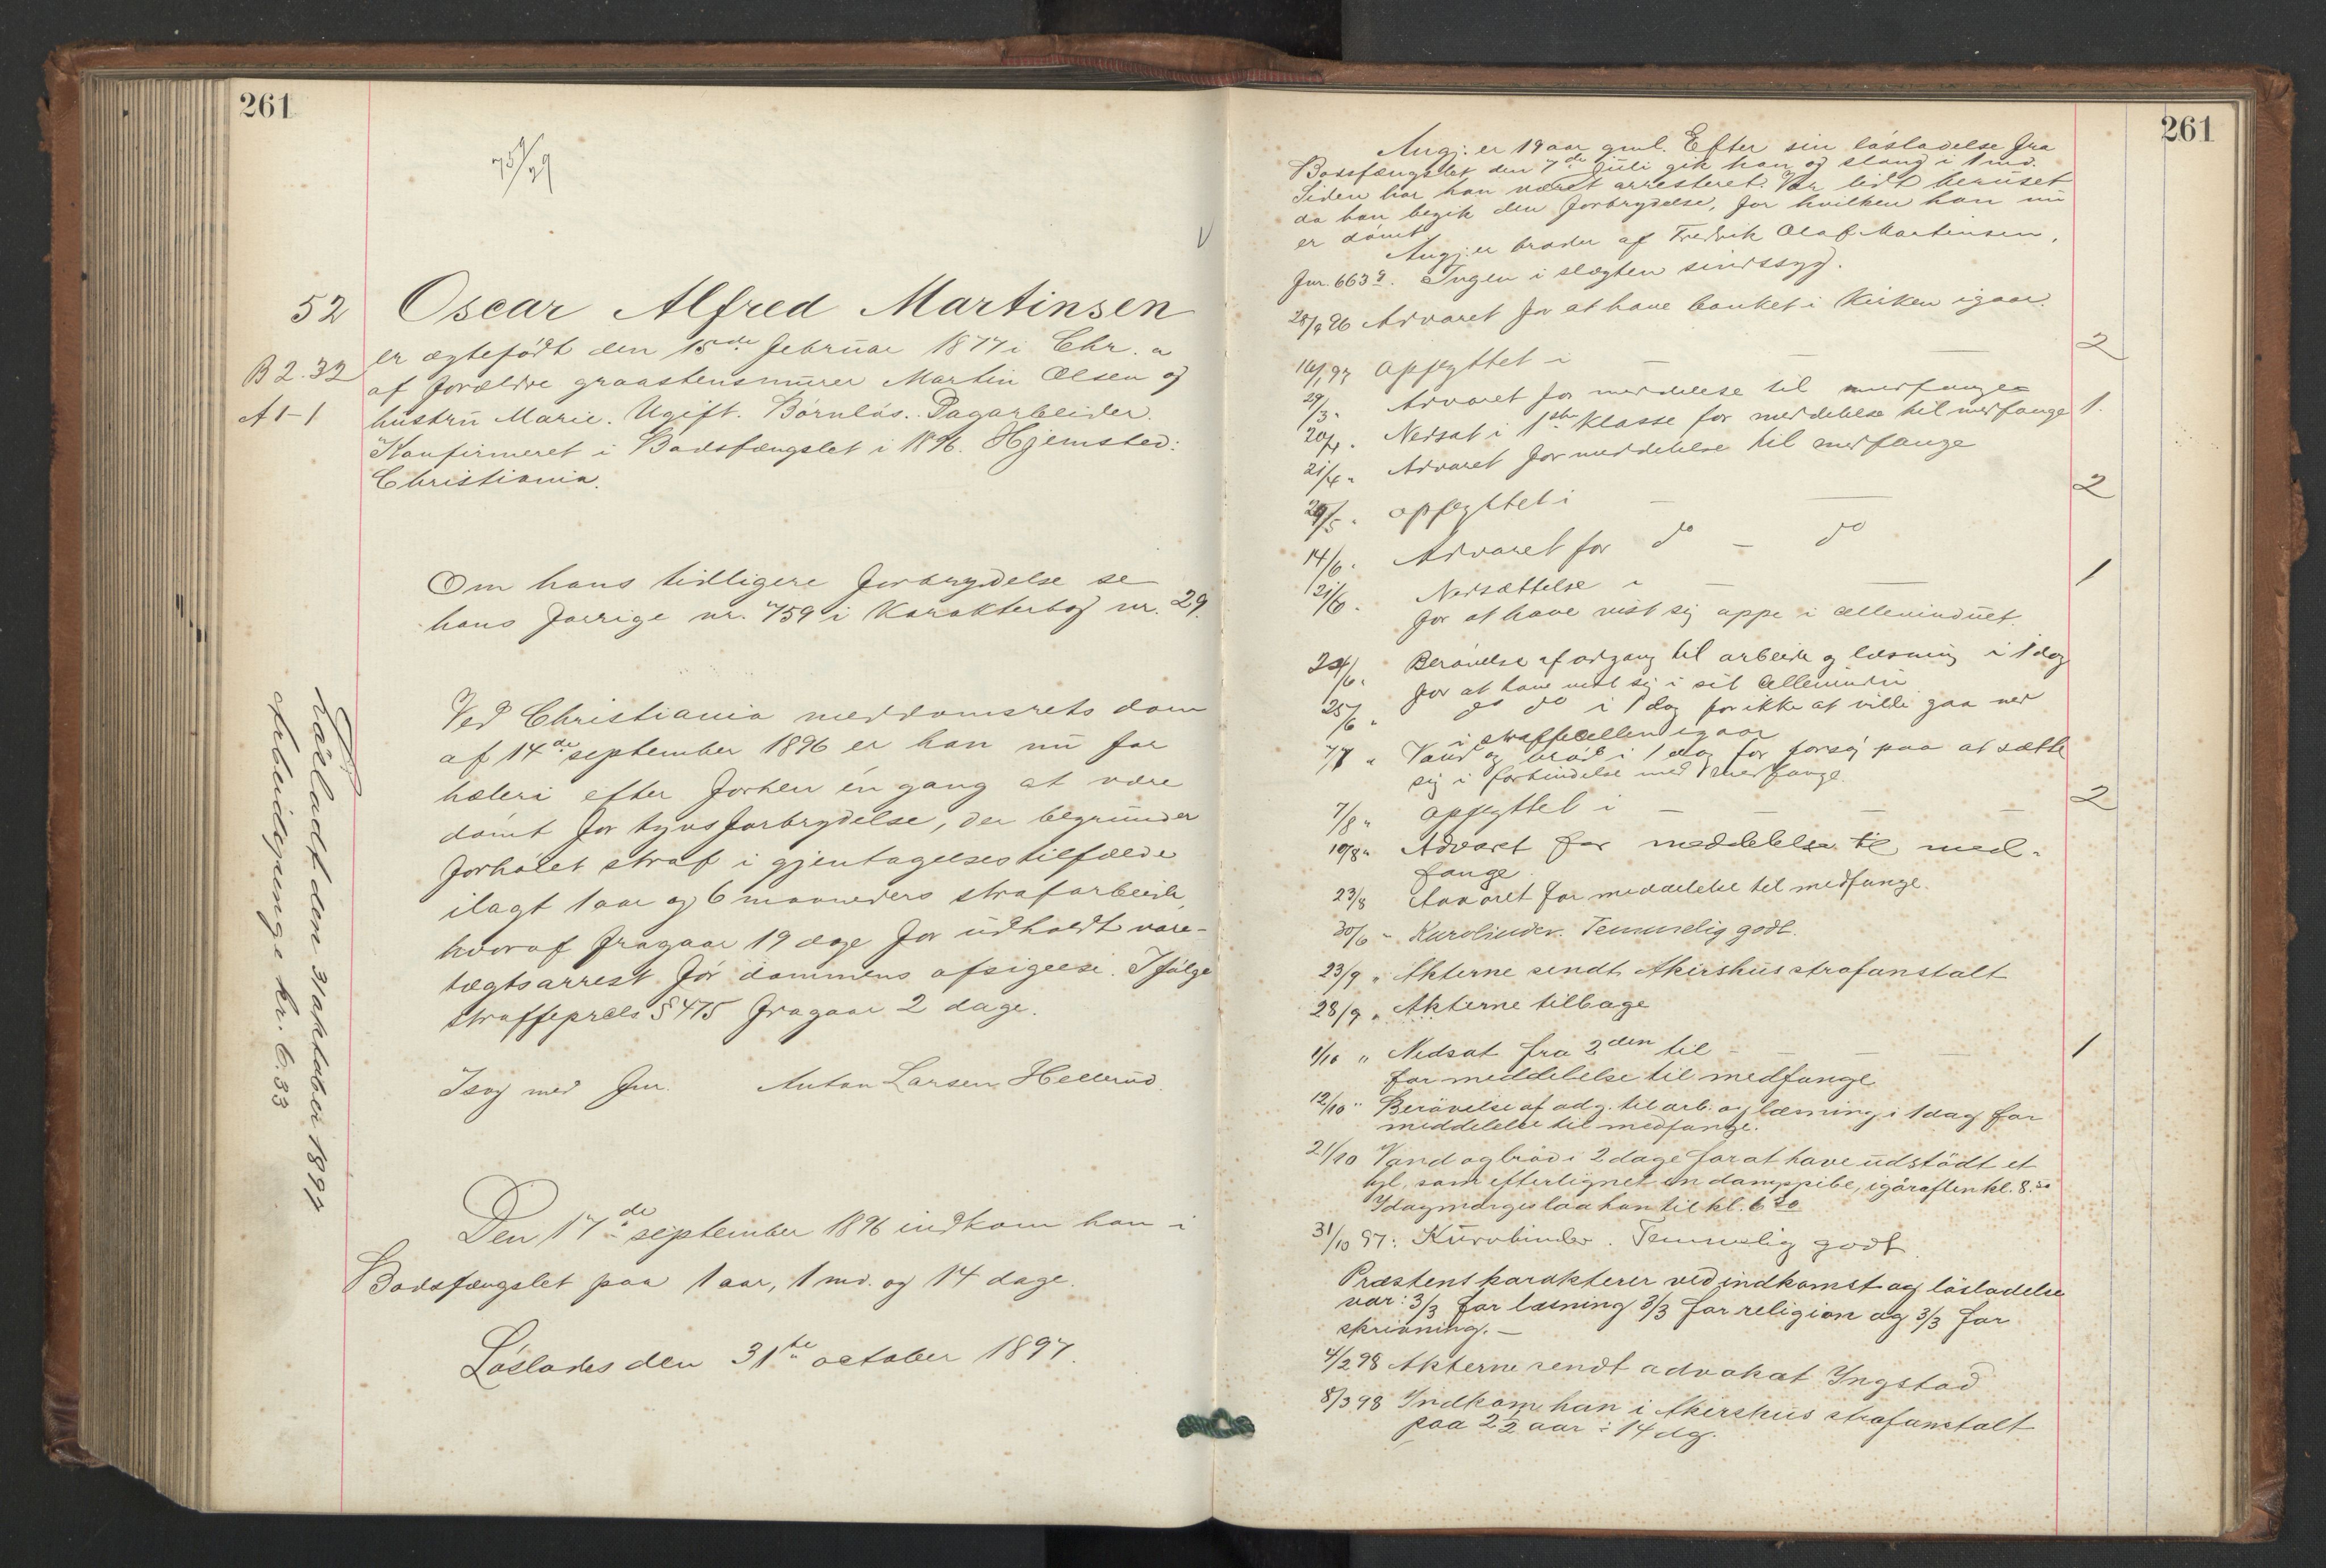 261
759/29
52 Oscar Alfred Martinsen
er ægtefödt den 15de februar 1877 i Chr.a
B 2.32 af forældre graastensmurer Martin Olsen og
A 1-1 hustru Marie. Ugift. Börnlös. Dagarbeider.
Konfirmeret i Bodsfængslet i 1896. Hjemsted:
Christiania.
Om hans tidligere forbrydelse se
hans forrige nr. 759 i Karakterbog nr. 29.
Ved Christiania meddomsrets dom
af 14de september 1896 er han nu for
hæleri efter forhen én gang at være
dömt for tyvsforbrydelse, der begrunder
forhöiet straf i gjentagelsestilfælde
ilagt 1 aar og 6 maaneders strafarbeide,
hvoraf fragaar 19 dage for udholdt vare-
tægtsarrest för dommens afsigelse. Ifölge
straffeprocls § 475 fragaar 2 dage.
Isog med fnr. Anton Larsen Hellerud.
Den 17de september 1896 indkom han i
Bodsfængslet paa 1 aar, 1 md. og 14 dage.
Löslades den 31te october 1897.
Lösladt den 31 oktober 1897
Arbeidspenge kr. 6.33
261
Angj. er 19 aar gml. Efter sin lösladelse fra
Bodsfængslet den 7de Juli gik han og slang i 1 md.
Siden har han været arresteret. Var lidt beruset
da han begik den forbrydelse, for hvilken han nu
er dömt.
Angj. er broder af Fredrik Olaf Martinsen,
fnr. 663 . Ingen i slægten sindssyg.
28/9 96 Advaret for at have banket i Kirken igaar.
16/1 97 Opflyttet i — — — 2
29/3 " Advaret for meddelelse til medfange
20/4 " Nedsat i 1ste Klasse for meddelelse til medfange 1.
21/4 " Advaret for meddelelse til medfange
29/5 " opflyttet i — — 2
14/6 " Advaret for do — do
21/6 " Nedsættelse i — — 1
for at have vist sig oppe i cellevinduet.
24/6 " Berövelse af adgang til arbeide og læsning i 1 dag
for at have vist sig i sit cellevindu
25/6 " do do i 1 dag for ikke at ville gaa ned
i straffecellen igaar
7/7 " Vand og bröd i 1 dag for forsög paa at sætte
sig i forbindelse med medfange.
7/8 " opflyttet i — — — 2
10/8 " Advaret for meddelelse til med-
fange.
23/8 Advaret for meddelelse til medfange.
30/6 " Kurvbinder. Temmelig godt.
23/9 " Akterne sendt Akershus strafanstalt
28/9 " Akterne tilbage
1/10 " Nedsat fra 2den til — — — 1
for meddelelse til medfange
12/10 " Berövelse af adg. til arb. og læsning i 1 dag for
meddelelse til medfange.
21/10 Vand og bröd i 2 dage for at have udstödt et
hyl, som efterlignet en damppibe, igåraften kl. 8.
Idagmorges laa han til kl. 6 20
31/10 97: Kurvbinder. Temmelig godt.
Præstens karakterer ved indkomst og lösladelse
var: 3/3 for læsning 3/3 for religion og 3/3 for
skrivning. —
4/2 98 Akterne sendt advokat Yngstad
8/3 98 Indkom han i Akershus strafanstalt
paa 2 1/2 aar ÷ 14 dg.